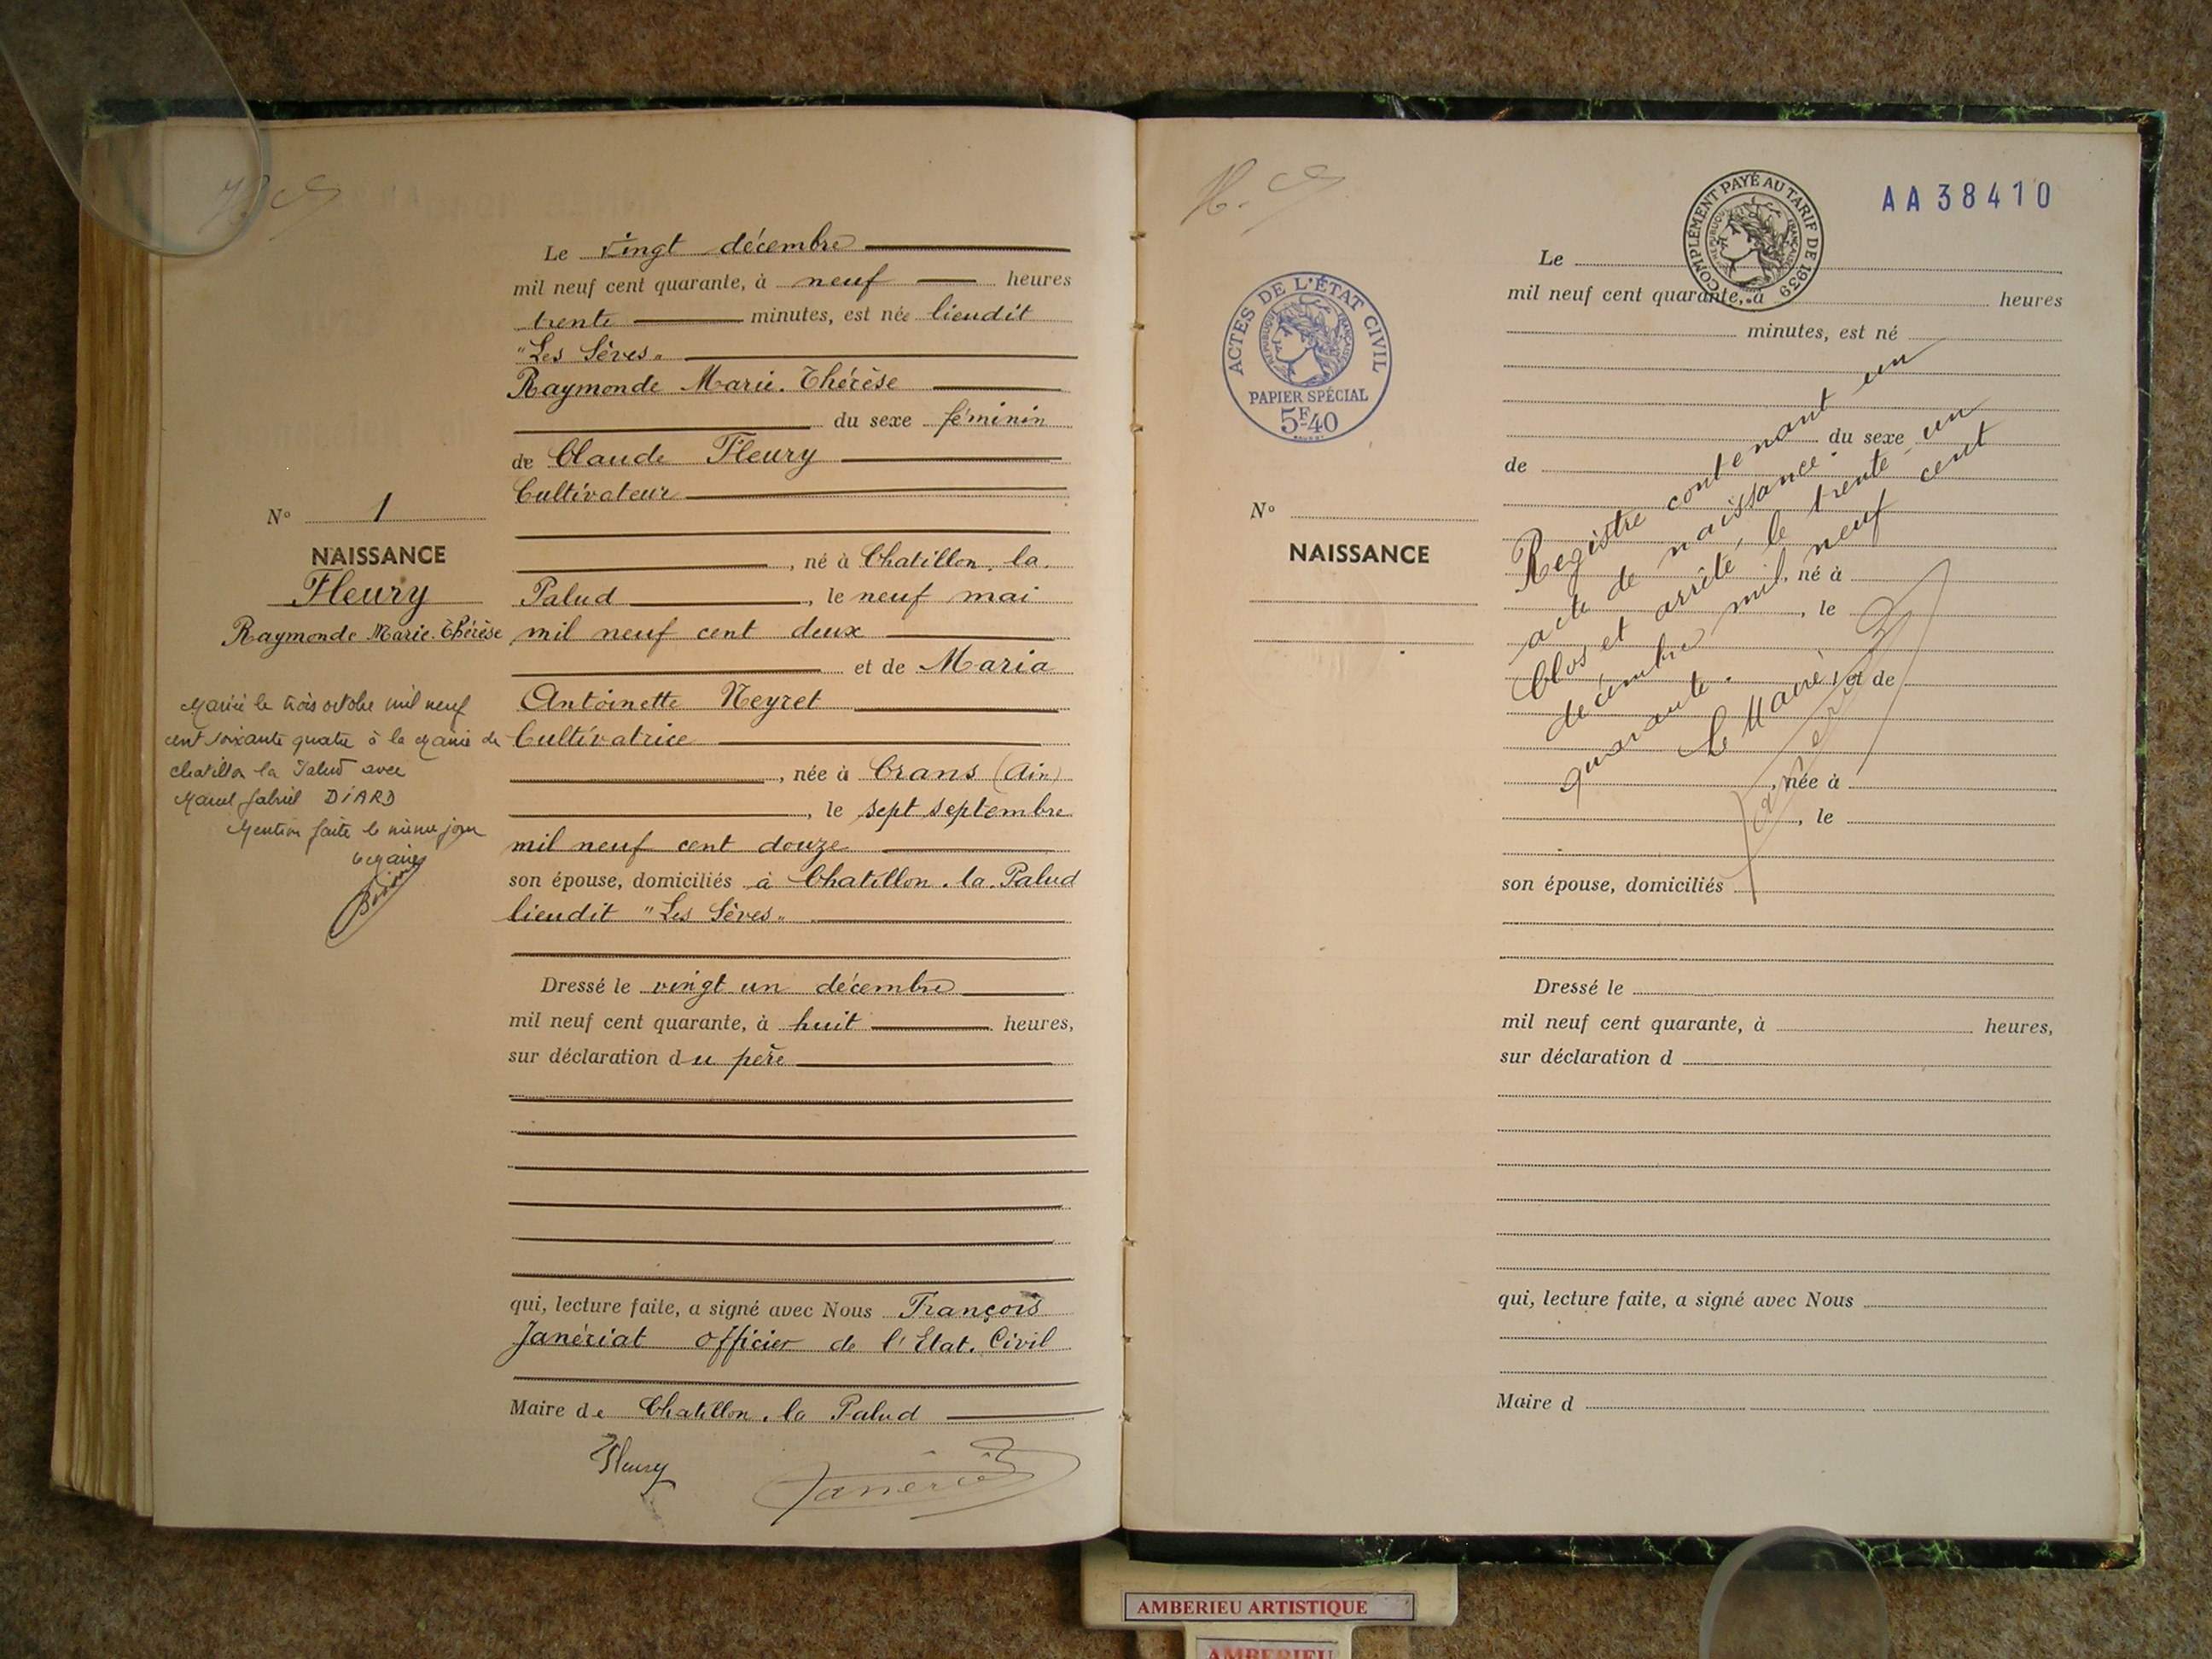 Le vingt décembre
mil neuf cent quarante, à neuf heures
trente minutes, est née lieudit
"Les Sèves"
Raymonde Marie-Thérèse
du sexe féminin
de Claude Fleury
Cultivateur
N° 1
NAISSANCE
Fleury
Raymonde Marie-Thérèse
, né à Chatillon-la-
Palud, le neuf mai
mil neuf cent deux
et de Maria
Antoinette Neyret
Cultivatrice
, née à Crans (Ain)
, le sept septembre
mil neuf cent douze
son épouse, domiciliés à Chatillon-la-Palud
lieudit "Les Sèves"
Mariée le trois octobre mil neuf
cent soixante quatre à la Mairie de
Chatillon la Palud avec
Marcel Gabriel DIARD
Mention faite le même jour
Le Maire
Dressé le vingt un décembre
mil neuf cent quarante, à huit heures,
sur déclaration du père
qui, lecture faite, a signé avec Nous François
Janériat officier de l'Etat-Civil
Maire de Chatillon-la-Palud
Fleury
COMPLÉMENT PAYÉ AU TARIF DE 1939
RÉPUBLIQUE FRANÇAISE
AA38410
ACTES DE L'ÉTAT CIVIL
RÉPUBLIQUE FRANÇAISE
PAPIER SPÉCIAL
5F40
Le
mil neuf cent quarante, à heures
minutes, est né
du sexe
de
N°
NAISSANCE
, né à
, le
et de
, née à
, le
son épouse, domiciliés
Registre contenant un
acte de naissance.
Clos et arrêté, le trente-un
décembre mil neuf cent
quarante.
Le Maire,
Dressé le
mil neuf cent quarante, à heures,
sur déclaration d
qui, lecture faite, a signé avec Nous
Maire d
AMBERIEU ARTISTIQUE
AMBERIEU